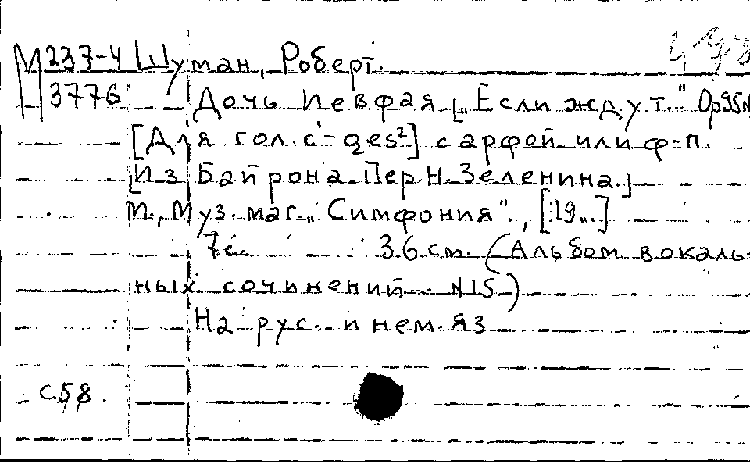 М 237-4 Шуман, Роберт.
3776 Дочь Иевфая ["Если ждут.." Op 95 №
[Для гол. c¹-ges²] с арфой или ф-п.
[Из Байрона. Пер Н. Зеленина.]
М., Муз. маг. "Симфония", [19...]
7 с. 36 см. (Альбом вокаль-
ных сочинений. №15)
На рус. и нем. яз
с58.